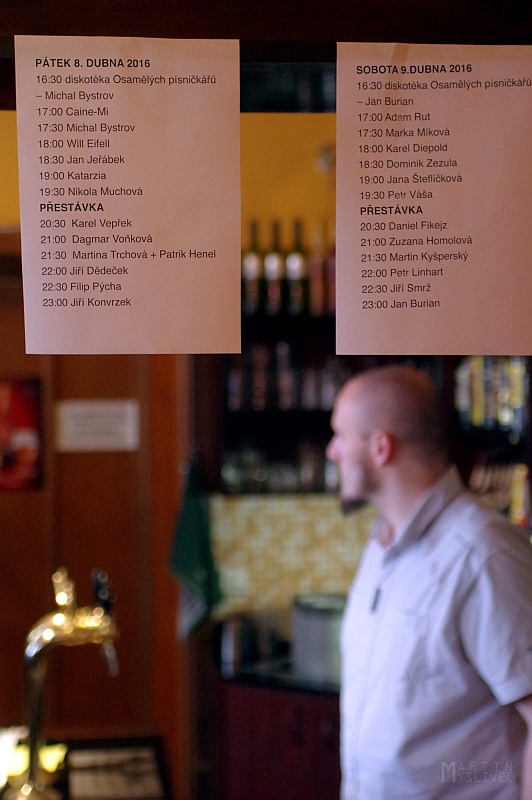 PÁTEK 8. DUBNA 2016
16:30 diskotéka Osamělých písničkářů
– Michal Bystrov
17:00 Caine-Mi
17:30 Michal Bystrov
18:00 Will Eifell
18:30 Jan Jeřábek
19:00 Katarzia
19:30 Nikola Muchová
PŘESTÁVKA
20:30 Karel Vepřek
21:00 Dagmar Voňková
21:30 Martina Trchová + Patrik Henel
22:00 Jiří Dědeček
22:30 Filip Pýcha
23:00 Jiří Konvrzek
SOBOTA 9.DUBNA 2016
16:30 diskotéka Osamělých písničkářů
– Jan Burian
17:00 Adam Rut
17:30 Marka Míková
18:00 Karel Diepold
18:30 Dominik Zezula
19:00 Jana Šteflíčková
19:30 Petr Váša
PŘESTÁVKA
20:30 Daniel Fikejz
21:00 Zuzana Homolová
21:30 Martin Kyšperský
22:00 Petr Linhart
22:30 Jiří Smrž
23:00 Jan Burian
MARTIN
MYSLIVEC